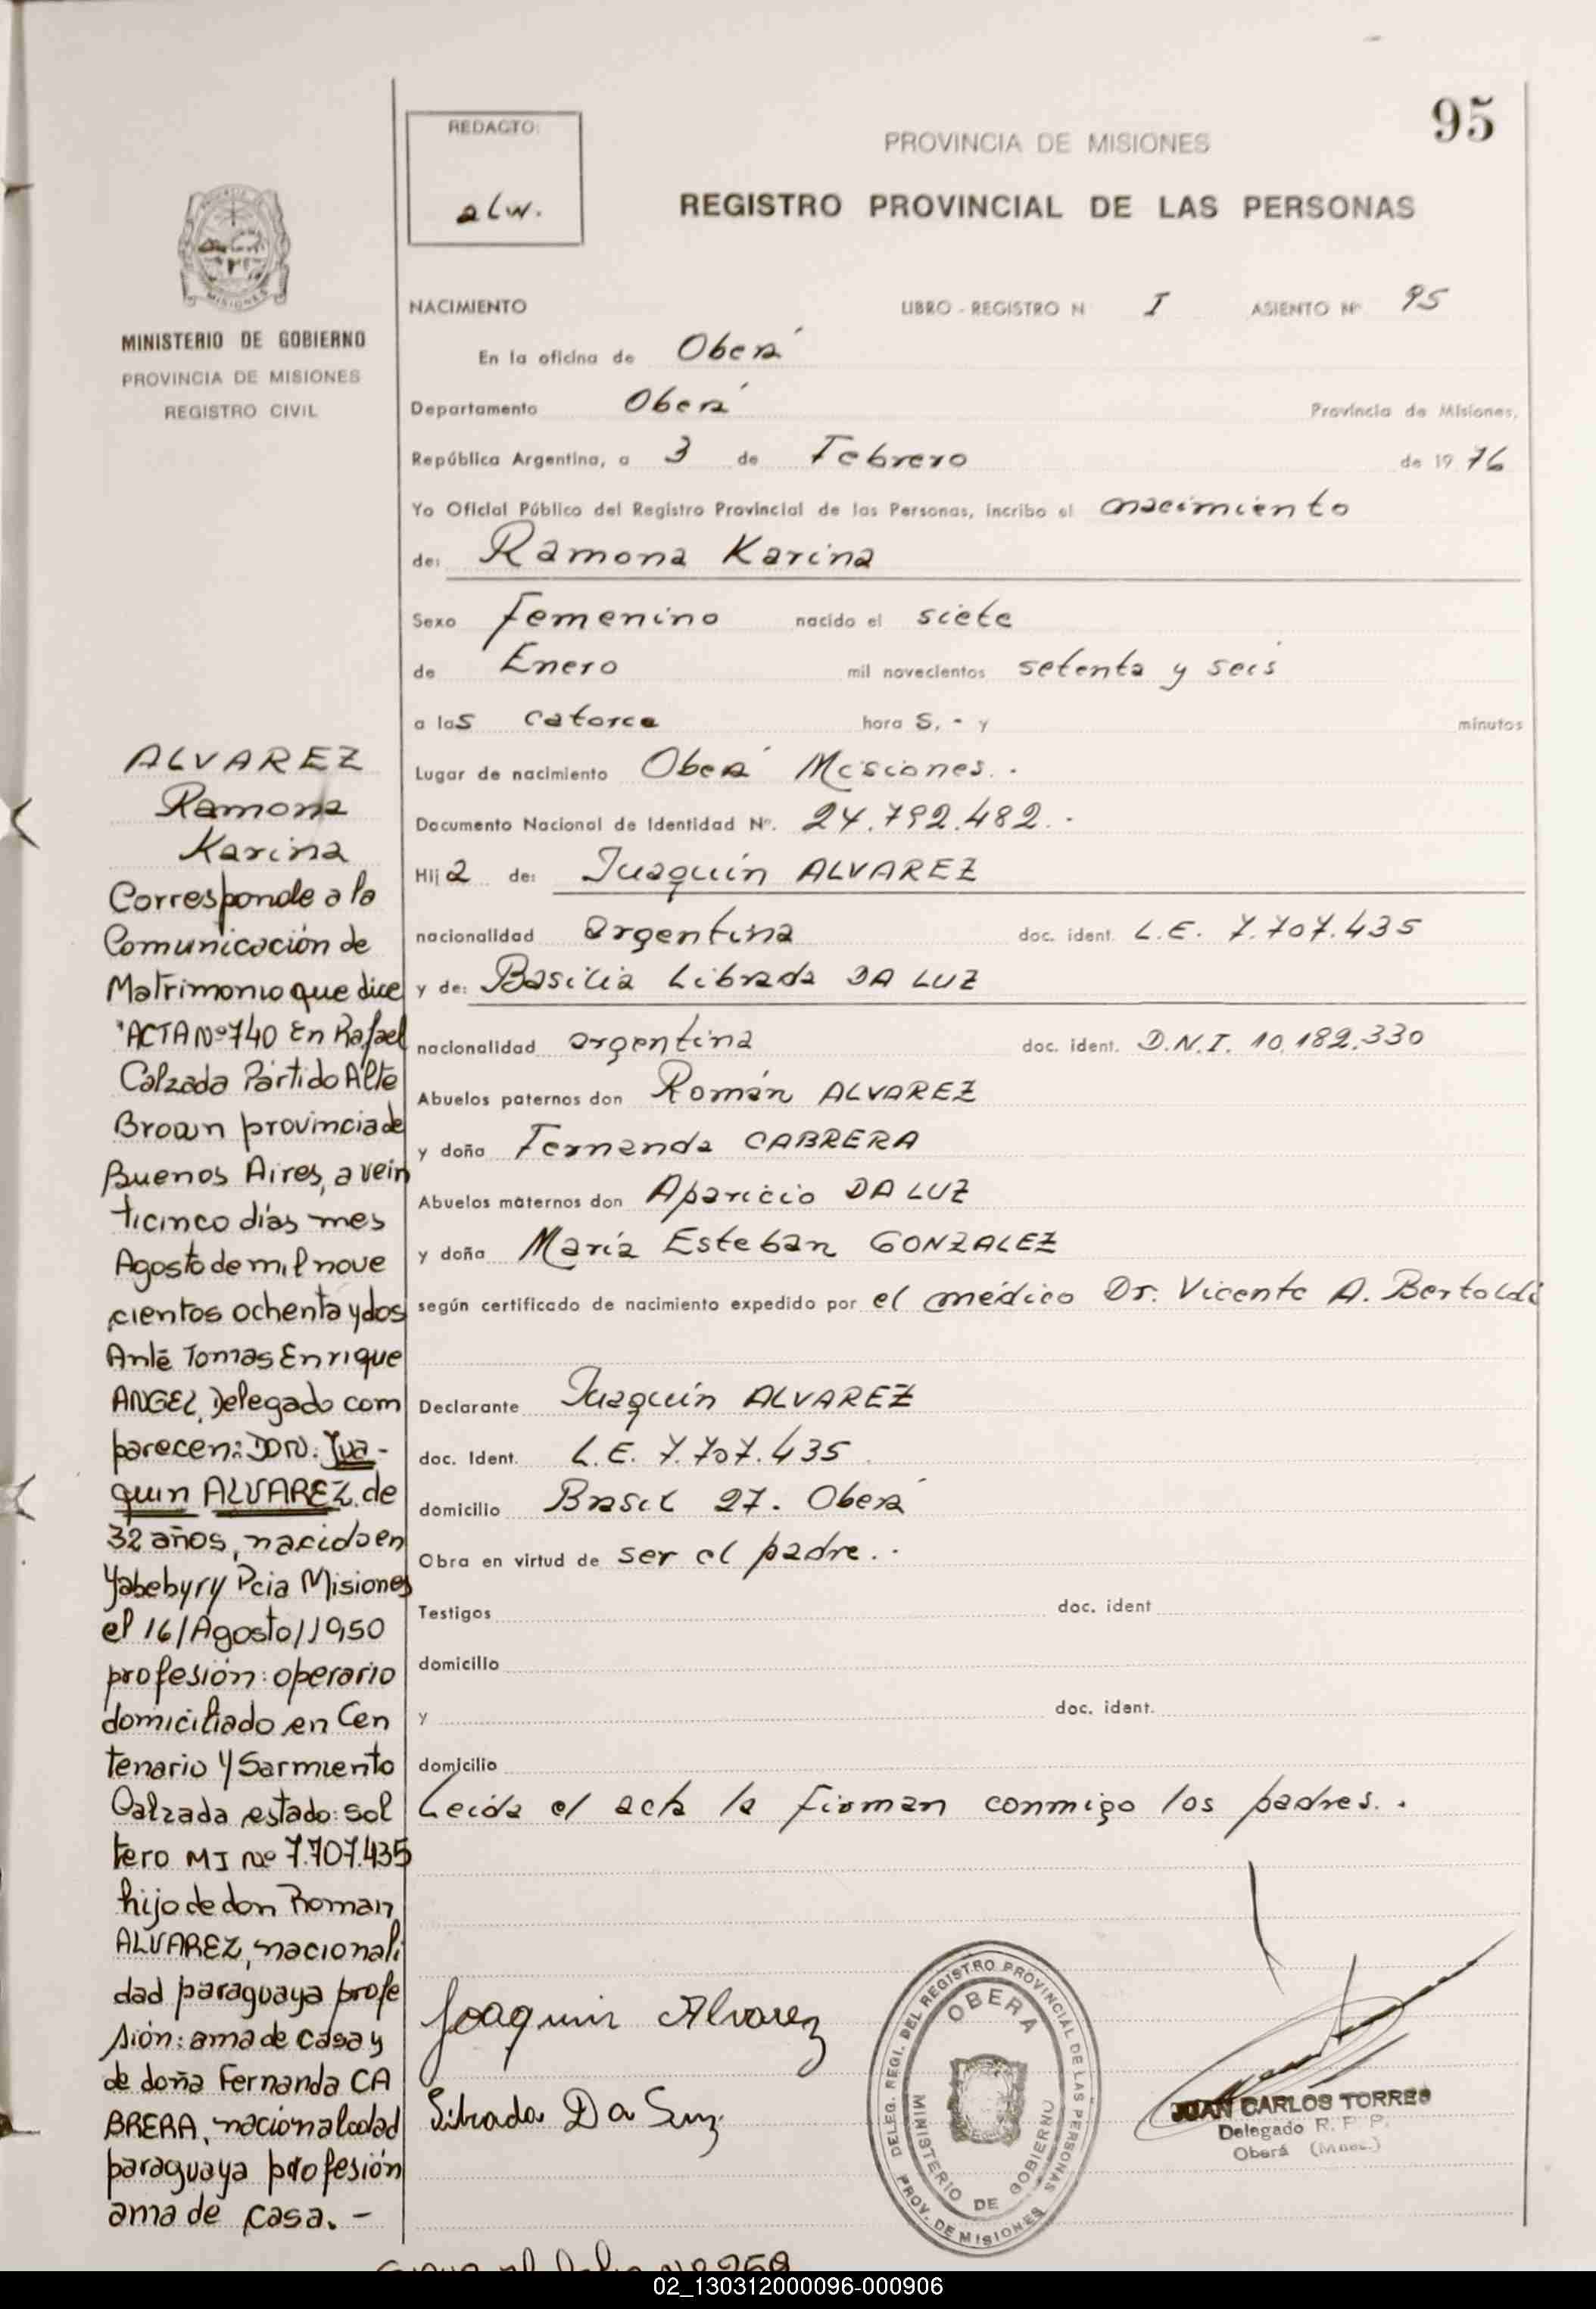 95
REDACTO:
alw.
PROVINCIA DE MISIONES
REGISTRO PROVINCIAL DE LAS PERSONAS
MISIONES
MINISTERIO DE GOBIERNO
PROVINCIA DE MISIONES
REGISTRO CIVIL
NACIMIENTO LIBRO - REGISTRO N I ASIENTO Nº 95
En la oficina de Oberá
Departamento Oberá Provincia de Misiones,
República Argentina, a 3 de Febrero de 19 76
Yo Oficial Público del Registro Provincial de las Personas, incribo el nacimiento
de: Ramona Karina
Sexo Femenino nacido el siete
de Enero mil novecientos setenta y seis
a las catorce hora s. - y minutos
Lugar de nacimiento Oberá Misiones. -
Documento Nacional de Identidad Nº. 24.792.482. -
Hija de: Juaquín ALVAREZ
nacionalidad argentina doc. ident. L.E. 7.707.435
y de: Basilia Librada DA LUZ
nacionalidad argentina doc. ident. D.N.I. 10.182.330
Abuelos paternos don Román ALVAREZ
y doña Fernanda CABRERA
Abuelos maternos don Aparicio DA LUZ
y doña María Esteban GONZALEZ
según certificado de nacimiento expedido por el médico Dr. Vicente A. Bertoldi
Declarante Juaquín ALVAREZ
doc. Ident. L.E. 7.707.435
domicilio Brasil 27. Oberá
Obra en virtud de ser el padre. -
Testigos doc. ident
domicilio
y doc. ident.
domicilio
Leida el acta la firman conmigo los padres. -
Joaquin Alvarez
Librada Da Luz
DELEG. REGI. DEL REGISTRO PROVINCIAL DE LAS PERSONAS
OBERA
MINISTERIO DE GOBIERNO
PROV. DE MISIONES
JUAN CARLOS TORRES
Delegado R. P. P.
Oberá (Mnes.)
ALVAREZ
Ramona
Karina
Corresponde a la
Comunicación de
Matrimonio que dice
"ACTA Nº 740 En Rafael
Calzada Partido Alte
Brown provincia de
Buenos Aires, a vein
ticinco días mes
Agosto de mil nove
cientos ochenta y dos
Ante Tomas Enrique
ANGEL, Delegado com
parecen: DON. Jua-
quin ALVAREZ, de
32 años, nacido en
Yabebyry Pcia Misiones
el 16/Agosto/1950
profesión: operario
domiciliado en Cen
tenario Y Sarmiento
Calzada estado: sol
tero MI Nº 7.707.435
hijo de don Roman
ALVAREZ, nacionali
dad paraguaya profe
sión: ama de casa y
de doña Fernanda CA
BRERA, nacionalidad
paraguaya profesión
ama de casa. -
02_130312000096-000906